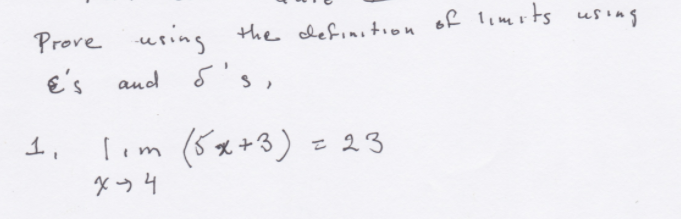 Prove using the definition of limits using
ε's and δ's,
1. lim (5x+3) = 23
x→4